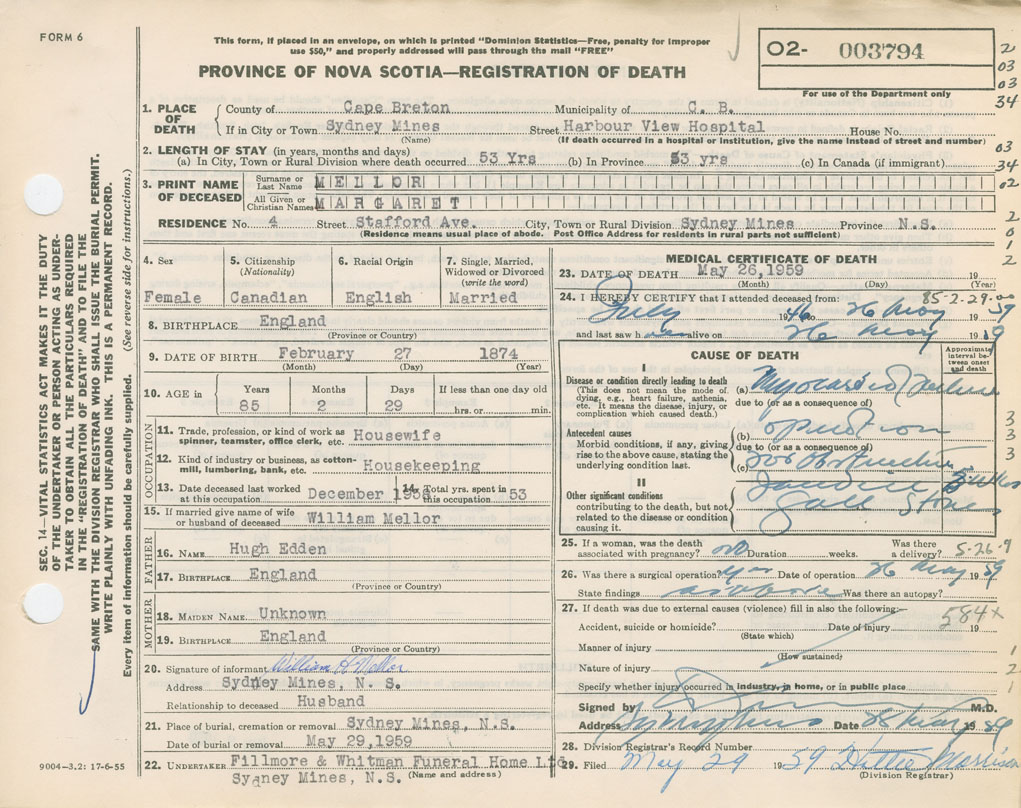 FORM 6
This form, if placed in an envelope, on which is printed "Dominion Statistics—Free, penalty for improper
use $50," and properly addressed will pass through the mail "FREE"
PROVINCE OF NOVA SCOTIA—REGISTRATION OF DEATH
O2- 003794
For use of the Department only
2
03
03
34
03
34
02
2
0
1
2
1. PLACE OF DEATH
County of Cape Breton Municipality of C. B.
If in City or Town Sydney Mines Street Harbour View Hospital House No.
(Name) (If death occurred in a hospital or institution, give the name instead of street and number)
2. LENGTH OF STAY (in years, months and days)
(a) In City, Town or Rural Division where death occurred 53 Yrs (b) In Province 53 yrs (c) In Canada (if immigrant)
3. PRINT NAME OF DECEASED
Surname or Last Name MELLOR
All Given or Christian Names MARGARET
RESIDENCE No. 4 Street Stafford Ave. City, Town or Rural Division Sydney Mines Province N.S.
(Residence means usual place of abode. Post Office Address for residents in rural parts not sufficient)
4. Sex Female
5. Citizenship (Nationality) Canadian
6. Racial Origin English
7. Single, Married, Widowed or Divorced (write the word) Married
8. BIRTHPLACE England
(Province or Country)
9. DATE OF BIRTH February 27 1874
(Month) (Day) (Year)
10. AGE in Years Months Days If less than one day old
85 2 29 hrs. or min.
OCCUPATION
11. Trade, profession, or kind of work as spinner, teamster, office clerk, etc. Housewife
12. Kind of industry or business, as cotton-mill, lumbering, bank, etc. Housekeeping
13. Date deceased last worked at this occupation December 1958 14. Total yrs. spent in this occupation 53
15. If married give name of wife or husband of deceased William Mellor
FATHER
16. NAME Hugh Edden
17. BIRTHPLACE England
(Province or Country)
MOTHER
18. MAIDEN NAME Unknown
19. BIRTHPLACE England
(Province or Country)
20. Signature of informant William H Mellor
Address Sydney Mines, N. S.
Relationship to deceased Husband
21. Place of burial, cremation or removal Sydney Mines, N.S.
Date of burial or removal May 29,1959
22. UNDERTAKER Fillmore & Whitman Funeral Home Ltd.
Sydney Mines, N.S. (Name and address)
9004—3.2: 17-6-55
MEDICAL CERTIFICATE OF DEATH
23. DATE OF DEATH May 26,1959 19
(Month) (Day) (Year)
85-2-29-00
24. I HEREBY CERTIFY that I attended deceased from:
July 1946 to 26 May 1959
and last saw h alive on 26 May 1959
CAUSE OF DEATH
Approximate interval between onset and death
I
Disease or condition directly leading to death
(This does not mean the mode of dying, e.g., heart failure, asthenia, etc. It means the disease, injury, or complication which caused death.)
(a) Myocardial Failure
due to (or as a consequence of)
Antecedent causes
Morbid conditions, if any, giving rise to the above cause, stating the underlying condition last.
(b) operation
due to (or as a consequence of)
(c) for obstructive
Jaundice
II
Other significant conditions
contributing to the death, but not related to the disease or condition causing it.
Gall Stones
3
3
3
3
25. If a woman, was the death associated with pregnancy? no Duration weeks. Was there a delivery? 5-26-9
26. Was there a surgical operation? yes Date of operation 26 May 1959
State findings as above Was there an autopsy?
27. If death was due to external causes (violence) fill in also the following: 584x
Accident, suicide or homicide? Date of injury 19
(State which)
Manner of injury 1
(How sustained)
Nature of injury 2
Specify whether injury occurred in industry, in home, or in public place 1
Signed by M.D.
Address Sydney Mines Date 28 May 1959
28. Division Registrar's Record Number
29. Filed May 29 1959 Hattie Morrison
(Division Registrar)
SEC. 14—VITAL STATISTICS ACT MAKES IT THE DUTY
OF THE UNDERTAKER OR PERSON ACTING AS UNDER-
TAKER TO OBTAIN ALL THE PARTICULARS REQUIRED
IN THE "REGISTRATION OF DEATH" AND TO FILE THE
SAME WITH THE DIVISION REGISTRAR WHO SHALL ISSUE THE BURIAL PERMIT.
WRITE PLAINLY WITH UNFADING INK. THIS IS A PERMANENT RECORD.
Every item of information should be carefully supplied. (See reverse side for instructions.)